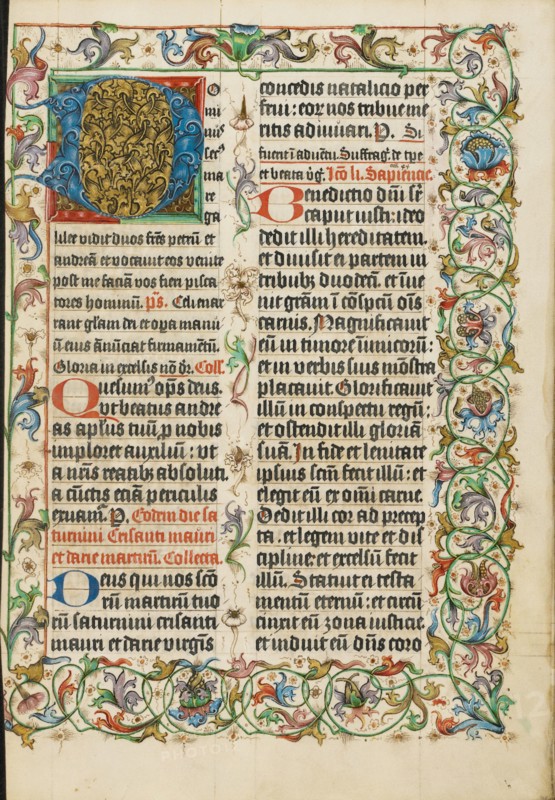 D
o
mi
nus
secus
ma
re
ga
lilee vidit duos fr̄es petrū et
andreā et vocavit eos venite
post me faciam vos fieri pisca
tores hominū. p̄s. Celi enar
rant gl̄am dei et opa manu
ū eius anūnciat firmamētū.
Gloria in excelsis nō dr̄. Coll̄.
Quesumꝰ om̄ps deus.
vt beatus andre
as apl̄us tuū p nobis
imploret auxiliū: vt
a nr̄is reatibꝫ absoluti,
a cūctis eciā periculis
exuamꝰ. P. Eodem die sa
turnini Crisanti mauri
et darie martirū. Collecta.
Deus qui nos sctō
rū martirū tuo
rū saturnini crisanti
mauri et darie virgīs
concedis natalicio per
frui: eoꝝ nos tribue me
ritis adiuvari. P. Si
fuerit ī advētu. Suffrag. de tpe
et beata v̄g. Lcō li. Sapiēcie.
Benedictio dn̄i sr̄
caput iusti: ideo
dedit illi hereditatem.
et divisit ei partem in
tribubꝫ duodecī. et īve
nit grām ī cōspcū om̄s
carnis. Magnificavit
eū in timore inimicorū:
et in verbis suis mōstra
placavit. Glorificavit
illū in conspectu regū:
et ostendit illi gloriā
suā. In fide et lenitate
ipsius scm̄ fecit illū: et
elegit eū ex om̄i carne.
Dedit illi cor ad precep
ta. et legem vite et dis
cipline: et excelsū fecit
illū. Statuit ei testa
mentū eternū: et circū
cinxit eū zona iusticie
et induit eū dn̄s coro